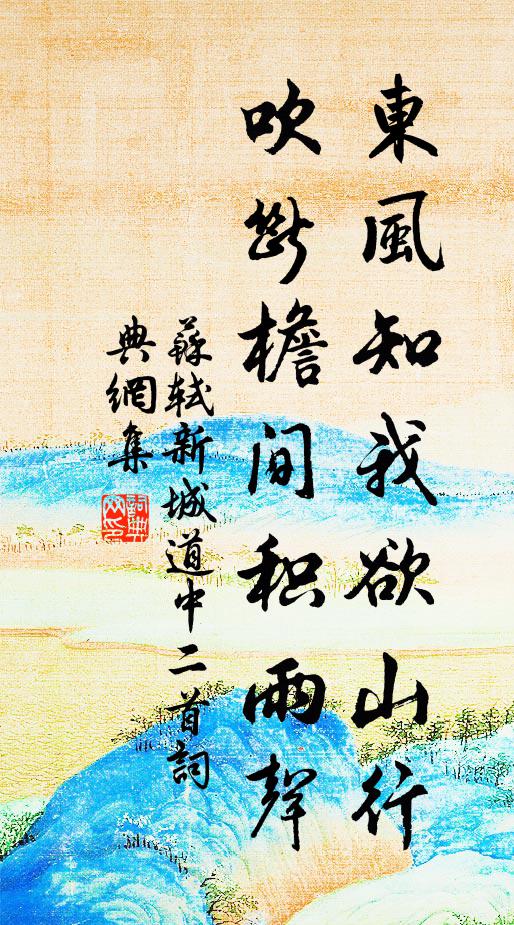 東風知我欲山行
吹斷檐間积雨聲
蘇軾新城道中二首詞
典網集
詞典
网印